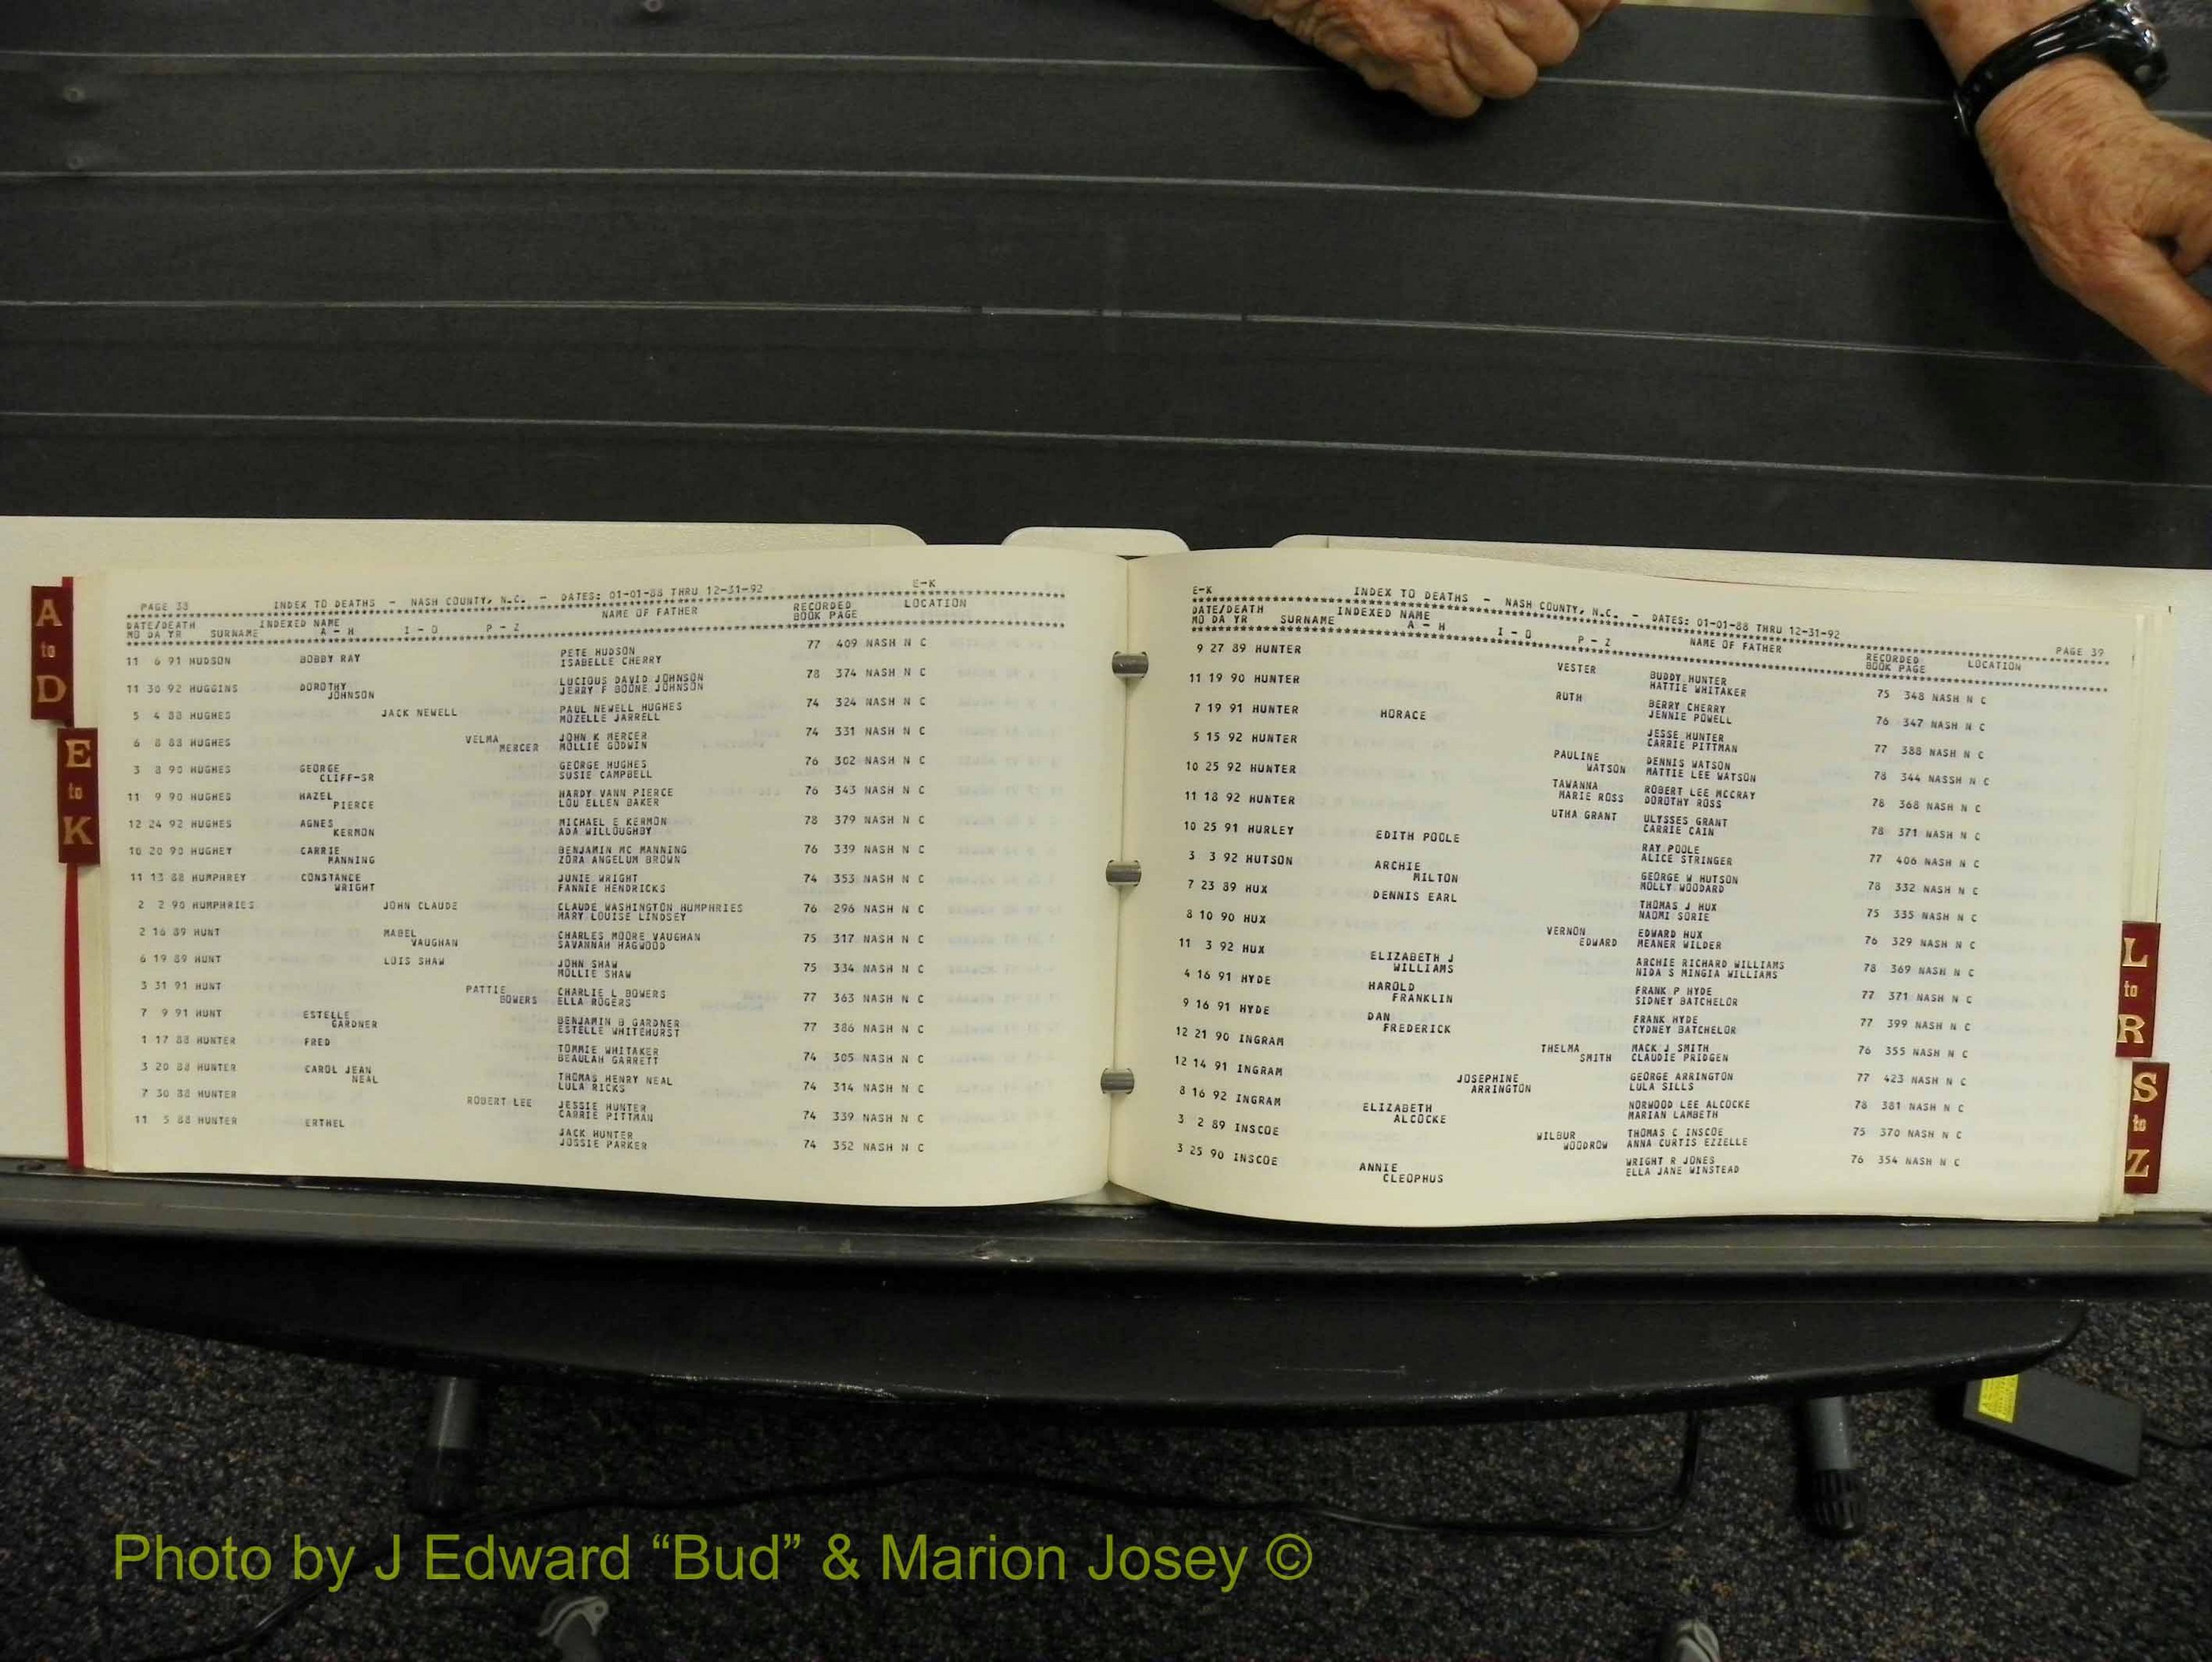 A
to
D
E
to
K
PAGE 38 INDEX TO DEATHS - NASH COUNTY, N.C. - DATES: 01-01-88 THRU 12-31-92 E-K
DATE/DEATH INDEXED NAME NAME OF FATHER RECORDED LOCATION
MO DA YR SURNAME A - H I - O P - Z BOOK PAGE
11 6 91 HUDSON BOBBY RAY PETE HUDSON 77 409 NASH N C
ISABELLE CHERRY
11 30 92 HUGGINS DOROTHY LUCIOUS DAVID JOHNSON 78 374 NASH N C
JOHNSON JERRY F BOONE JOHNSON
5 4 88 HUGHES JACK NEWELL PAUL NEWELL HUGHES 74 324 NASH N C
MOZELLE JARRELL
6 8 88 HUGHES VELMA JOHN K MERCER 74 331 NASH N C
MERCER MOLLIE GODWIN
3 8 90 HUGHES GEORGE GEORGE HUGHES 76 302 NASH N C
CLIFF-SR SUSIE CAMPBELL
11 9 90 HUGHES HAZEL HARDY VANN PIERCE 76 343 NASH N C
PIERCE LOU ELLEN BAKER
12 24 92 HUGHES AGNES MICHAEL E KERMON 78 379 NASH N C
KERMON ADA WILLOUGHBY
10 20 90 HUGHEY CARRIE BENJAMIN MC MANNING 76 339 NASH N C
MANNING ZORA ANGELUM BROWN
11 13 88 HUMPHREY CONSTANCE JUNIE WRIGHT 74 353 NASH N C
WRIGHT FANNIE HENDRICKS
2 2 90 HUMPHRIES JOHN CLAUDE CLAUDE WASHINGTON HUMPHRIES 76 296 NASH N C
MARY LOUISE LINDSEY
2 16 89 HUNT MABEL CHARLES MOORE VAUGHAN 75 317 NASH N C
VAUGHAN SAVANNAH HAGWOOD
6 19 89 HUNT LOIS SHAW JOHN SHAW 75 334 NASH N C
MOLLIE SHAW
3 31 91 HUNT PATTIE CHARLIE L BOWERS 77 363 NASH N C
BOWERS ELLA ROGERS
7 9 91 HUNT ESTELLE BENJAMIN B GARDNER 77 386 NASH N C
GARDNER ESTELLE WHITEHURST
1 17 88 HUNTER FRED TOMMIE WHITAKER 74 305 NASH N C
BEAULAH GARRETT
3 20 88 HUNTER CAROL JEAN THOMAS HENRY NEAL 74 314 NASH N C
NEAL LULA RICKS
7 30 88 HUNTER ROBERT LEE JESSIE HUNTER 74 339 NASH N C
CARRIE PITTMAN
11 5 88 HUNTER ERTHEL JACK HUNTER 74 352 NASH N C
JOSSIE PARKER
E-K INDEX TO DEATHS - NASH COUNTY, N.C. - DATES: 01-01-88 THRU 12-31-92 PAGE 39
DATE/DEATH INDEXED NAME NAME OF FATHER RECORDED LOCATION
MO DA YR SURNAME A - H I - O P - Z BOOK PAGE
9 27 89 HUNTER VESTER BUDDY HUNTER 75 348 NASH N C
HATTIE WHITAKER
11 19 90 HUNTER RUTH BERRY CHERRY 76 347 NASH N C
JENNIE POWELL
7 19 91 HUNTER HORACE JESSE HUNTER 77 388 NASH N C
CARRIE PITTMAN
5 15 92 HUNTER PAULINE DENNIS WATSON 78 344 NASSH N C
WATSON MATTIE LEE WATSON
10 25 92 HUNTER TAWANNA ROBERT LEE MCCRAY 78 368 NASH N C
MARIE ROSS DOROTHY ROSS
11 18 92 HUNTER UTHA GRANT ULYSSES GRANT 78 371 NASH N C
CARRIE CAIN
10 25 91 HURLEY EDITH POOLE RAY POOLE 77 406 NASH N C
ALICE STRINGER
3 3 92 HUTSON ARCHIE GEORGE W HUTSON 78 332 NASH N C
MILTON MOLLY WOODARD
7 23 89 HUX DENNIS EARL THOMAS J HUX 75 335 NASH N C
NAOMI SORIE
8 10 90 HUX VERNON EDWARD HUX 76 329 NASH N C
EDWARD MEANER WILDER
11 3 92 HUX ELIZABETH J ARCHIE RICHARD WILLIAMS 78 369 NASH N C
WILLIAMS NIDA S MINGIA WILLIAMS
4 16 91 HYDE HAROLD FRANK P HYDE 77 371 NASH N C
FRANKLIN SIDNEY BATCHELOR
9 16 91 HYDE DAN FRANK HYDE 77 399 NASH N C
FREDERICK CYDNEY BATCHELOR
12 21 90 INGRAM THELMA MACK J SMITH 76 355 NASH N C
SMITH CLAUDIE PRIDGEN
12 14 91 INGRAM JOSEPHINE GEORGE ARRINGTON 77 423 NASH N C
ARRINGTON LULA SILLS
8 16 92 INGRAM ELIZABETH NORWOOD LEE ALCOCKE 78 381 NASH N C
ALCOCKE MARIAN LAMBETH
3 2 89 INSCOE WILBUR THOMAS C INSCOE 75 370 NASH N C
WOODROW ANNA CURTIS EZZELLE
3 25 90 INSCOE ANNIE WRIGHT R JONES 76 354 NASH N C
CLEOPHUS ELLA JANE WINSTEAD
L
to
R
S
to
Z
Photo by J Edward “Bud” & Marion Josey ©